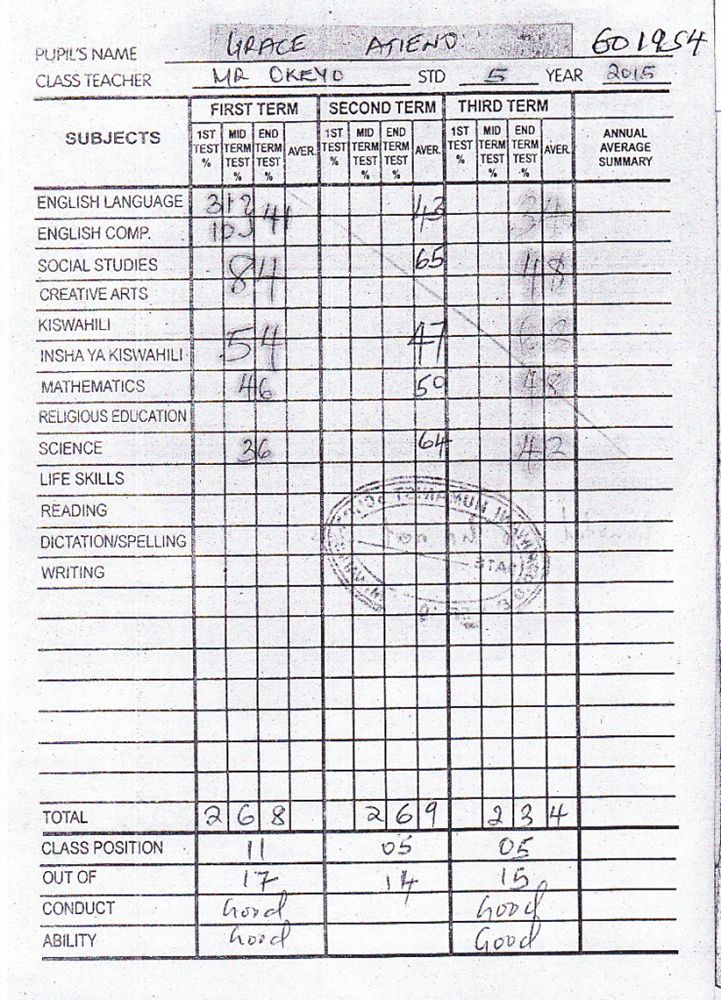 PUPIL'S NAME GRACE ATIENO GO1954
CLASS TEACHER MR OKEYO STD 5 YEAR 2015
SUBJECTS FIRST TERM SECOND TERM THIRD TERM ANNUAL AVERAGE SUMMARY
1ST TEST % MID TERM TEST % END TERM TEST % AVER. 1ST TEST % MID TERM TEST % END TERM TEST % AVER. 1ST TEST % MID TERM TEST % END TERM TEST % AVER.
ENGLISH LANGUAGE 31 41 43 34
ENGLISH COMP. 10
SOCIAL STUDIES 84 65 48
CREATIVE ARTS
KISWAHILI
INSHA YA KISWAHILI 54 47
MATHEMATICS 46 50 48
RELIGIOUS EDUCATION
SCIENCE 36 64 42
LIFE SKILLS
READING
DICTATION/SPELLING
WRITING
TOTAL 268 269 234
CLASS POSITION 11 05 05
OUT OF 17 14 15
CONDUCT Good Good
ABILITY Good Good